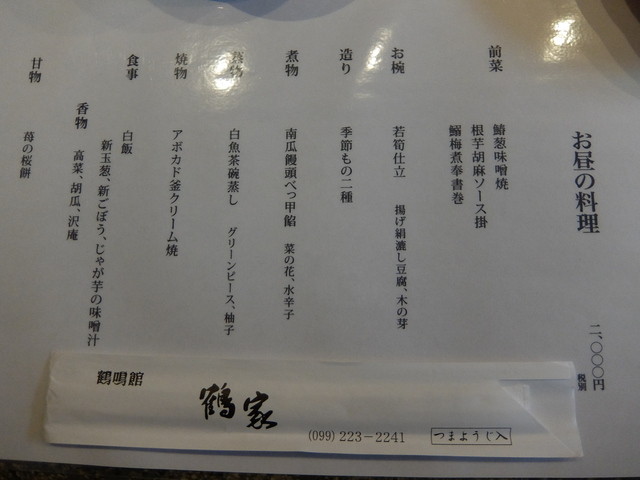 お昼の料理
二、〇〇〇円
税別
前菜
鰆葱味噌焼
根芋胡麻ソース掛
鰯梅煮奉書巻
お椀
若筍仕立 揚げ絹漉し豆腐、木の芽
造り
季節もの二種
煮物
南瓜饅頭べっ甲餡 菜の花、水辛子
白魚茶碗蒸し グリーンピース、柚子
焼物
アボカド釜クリーム焼
食事
白飯
新玉葱、新ごぼう、じゃが芋の味噌汁
香物 高菜、胡瓜、沢庵
甘物
苺の桜餅
鶴鳴館
鶴家
(099) 223-2241
つまようじ入